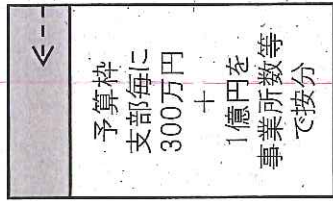 予算枠
支部毎に
300万円
＋
1億円を
事業所数等
で按分